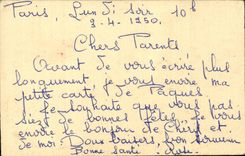 Paris, Lundi soir 10h
3-4-1950.
Chers Parents
Avant de vous écrire plus
longuement, je vous envoie ma
petite carte de Pâques.
Je souhaite que vous pas-
siez de bonnes fêtes. Je vous
envoie le bonjour de Chérif et
de moi. Doux baisers, bon souvenir
Bonne santé.